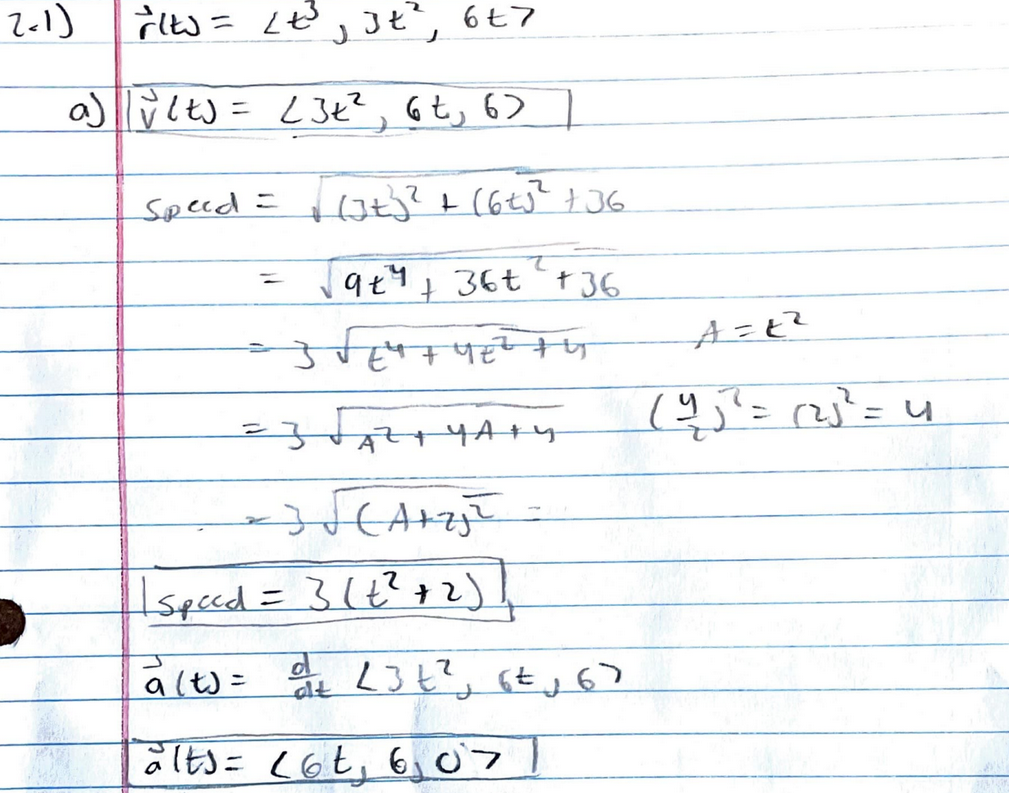 2.1) r⃗(t) = <t³, 3t², 6t>
a) v⃗(t) = <3t², 6t, 6>
speed = √((3t²)² + (6t)² + 36)
= √(9t⁴ + 36t² + 36)
= 3 √(t⁴ + 4t² + 4) A = t²
= 3 √(A² + 4A + 4) (4/2)² = (2)² = 4
= 3 √((A+2)²) =
speed = 3(t² + 2)
a⃗(t) = d/dt <3t², 6t, 6>
a⃗(t) = <6t, 6, 0>